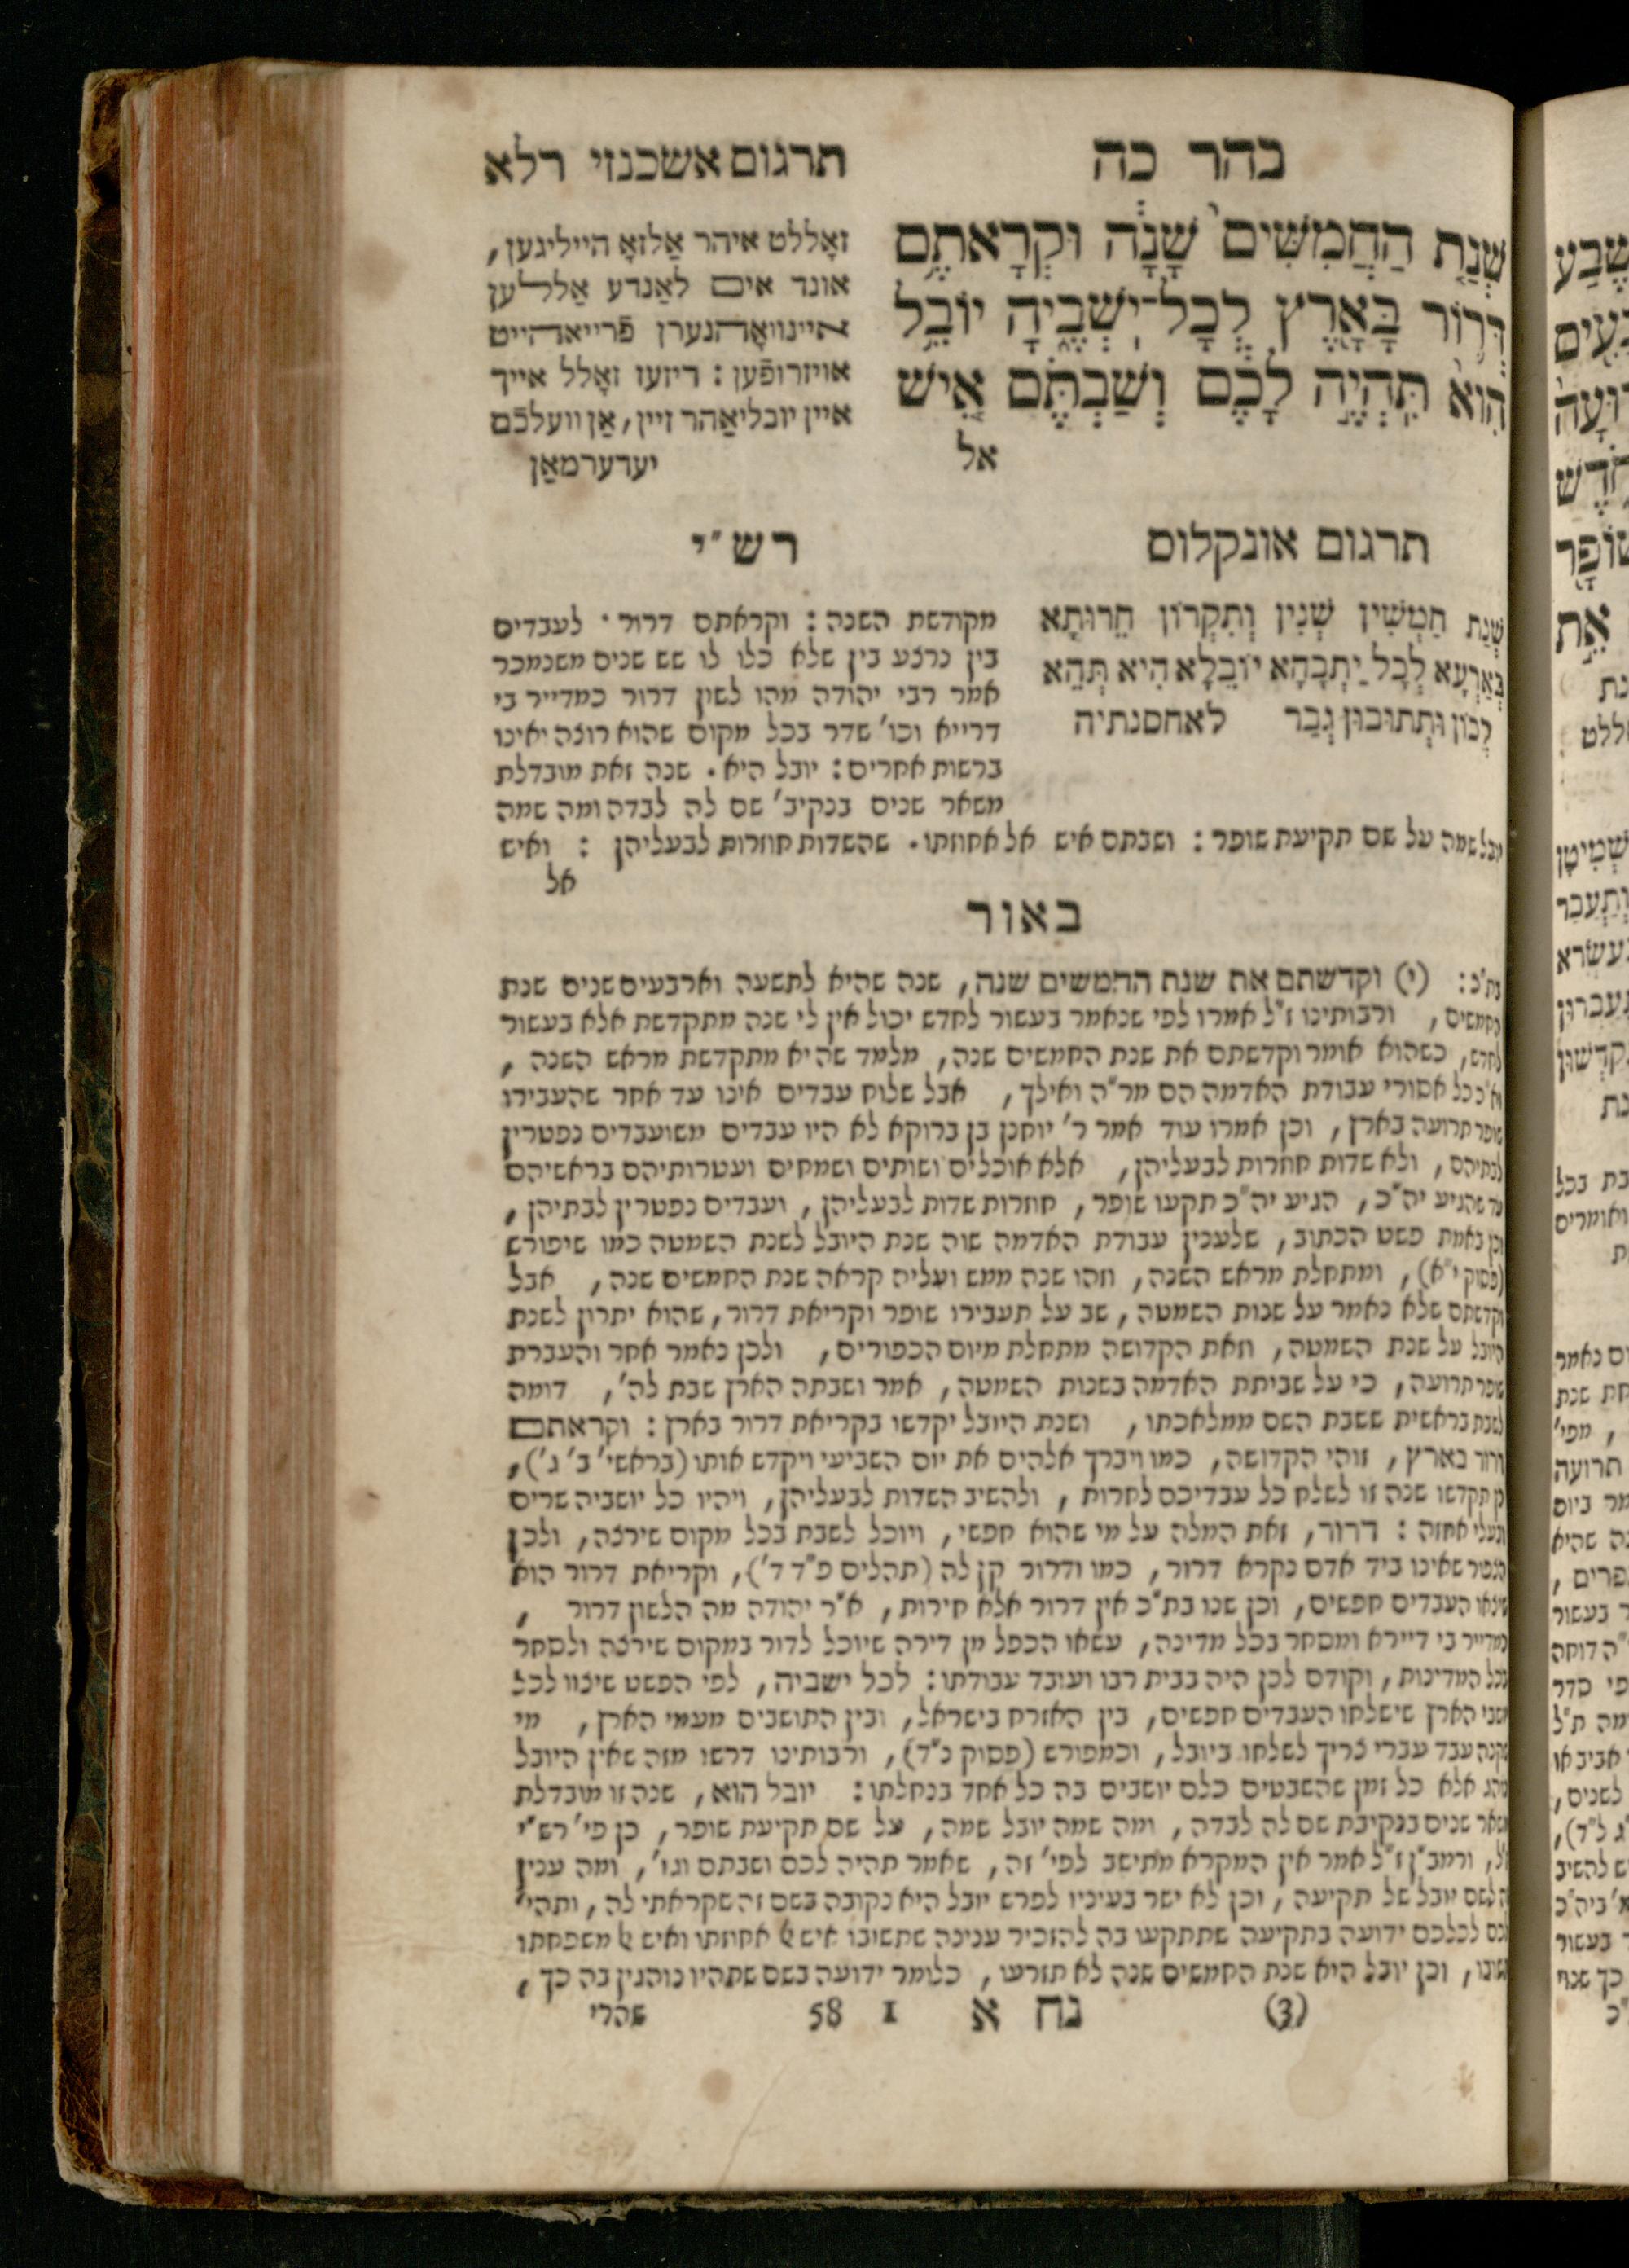 בהר כה
תרגום אשכנזי רלא
שְׁנַת הַחֲמִשִּׁים שָׁנָה וּקְרָאתֶם
דְּרוֹר בָּאָרֶץ לְכָל־יֹשְׁבֶיהָ יוֹבֵל
הִוא תִּהְיֶה לָכֶם וְשַׁבְתֶּם אִישׁ
אל
זאָללט איהר אַלזאָ הייליגען,
אונד אים לאַנדע אַללען
איינוואָהנערן פֿרייאהייט
אויזרופֿען: דיזעז זאָלל אייך
איין יובליאַהר זיין, אַן וועלכֿם
יעדערמאַן
תרגום אונקלוס
שְׁנַת חַמְשִׁין שְׁנִין וְתִקְרוֹן חֵרוּתָא
בְּאַרְעָא לְכָל יַתְבָהָא יוֹבֵלָא הִיא תְּהֵא
לְכוֹן וּתְתוּבוּן גְבַר לאחסנתיה
רש"י
מקודשת השנה: וקראתם דרור. לעבדים
בין נרצע בין שלא כלו לו שש שנים משנמכר
אמר רבי יהודה מהו לשון דרור כמדייר בי
דרייא וכו' שדר בכל מקום שהוא רוצה ואינו
ברשות אחרים: יובל היא. שנה זאת מובדלת
משאר שנים בנקיב' שם לה לבדה ומה שמה
יובל שמה על שם תקיעת שופר: ושבתם איש אל אחוזתו. שהשדות חוזרות לבעליהן: ואיש
אל
באור
בת"כ: (י) וקדשתם את שנת החמשים שנה, שנה שהיא לתשעה וארבעים שנים שנת
החמשים, ורבותינו ז"ל אמרו לפי שנאמר בעשור לחדש יכול אין לי שנה מתקדשת אלא בעשור
לחדש, כשהוא אומר וקדשתם את שנת החמשים שנה, מלמד שהיא מתקדשת מראש השנה,
וא"כ כל אסורי עבודת האדמה הם מר"ה ואילך, אבל שלוח עבדים אינו עד אחר שהעבירו
שופר תרועה בארץ, וכן אמרו עוד אמר ר' יוחנן בן ברוקא לא היו עבדים משועבדים נפטרין
לבתיהם, ולא שדות חוזרות לבעליהן, אלא אוכלים ושותים ושמחים ועטרותיהם בראשיהם
עד שהגיע יה"כ, הגיע יה"כ תקעו שופר, חוזרות שדות לבעליהן, ועבדים נפטרין לבתיהן,
וכן נאמת פשט הכתוב, שלענין עבודת האדמה שוה שנת היובל לשנת השמטה כמו שיפורש
(פסוק י"א), ומתחלת מראש השנה, וזהו שנה ממש ועליה קראה שנת החמשים שנה, אבל
וקדשתם שלא נאמר על שנות השמטה, שב על תעבירו שופר וקריאת דרור, שהוא יתרון לשנת
היובל על שנת השמטה, וזאת הקדושה מתחלת מיום הכפורים, ולכן נאמר אחר והעברת
שופר תרועה, כי על שביתת האדמה בשנות השמטה, אמר ושבתה הארץ שבת לה', דומה
לשבת בראשית ששבת השם ממלאכתו, ושנת היובל יקדשו בקריאת דרור בארץ: וקראתם
דרור בארץ, זוהי הקדושה, כמו ויברך אלהים את יום השביעי ויקדש אותו (בראשי' ב' ג'),
כן תקדשו שנה זו לשלח כל עבדיכם לחרות, ולהשיב השדות לבעליהן, ויהיו כל יושביה שרים
ובעלי אחוזה: דרור, זאת המלה על מי שהוא חפשי, ויוכל לשבת בכל מקום שירצה, ולכן
הצפור שאינו ביד אדם נקרא דרור, כמו ודרור קן לה (תהלים פ"ד ד'), וקריאת דרור הוא
שיצאו העבדים חפשים, וכן שנו בת"כ אין דרור אלא חירות, א"ר יהודה מה הלשון דרור,
כמדייר בי דיירא ומסחר בכל מדינה, עשאו הכפל מן דירה שיוכל לדור במקום שירצה ולסחר
בכל המדינות, וקודם לכן היה בבית רבו ועובד עבודתו: לכל ישביה, לפי הפשט שיצוו לכל
יושבי הארץ שישלחו העבדים חפשים, בין האזרח בישראל, ובין התושבים מעמי הארץ, מי
שקנה עבד עברי צריך לשלחו ביובל, וכמפורש (פסוק נ"ד), ורבותינו דרשו מזה שאין היובל
נוהג אלא כל זמן שהשבטים כלם יושבים בה כל אחד בנחלתו: יובל הוא, שנה זו מובדלת
משאר שנים בנקיבת שם לה לבדה, ומה שמה יובל שמה, על שם תקיעת שופר, כן פי' רש"י
ז"ל, ורמב"ן ז"ל אמר אין המקרא מתישב לפי' זה, שאמר תהיה לכם ושבתם וגו', ומה ענין
הלשם יובל של תקיעה, וכן לא ישר בעיניו לפרש יובל היא נקובה בשם זה שקראתי לה, ותהי'
לכלכם ידועה בתקיעה שתתקעו בה להזכיר ענינה שתשובו איש אל אחוזתו ואיש אל משפחתו
תשובו, וכן יובל היא שנת החמשים שנה לא תזרעו, כלומר ידועה בשם שתהיו נוהגין בה כך,
(3) נח א 1 58 שהרי